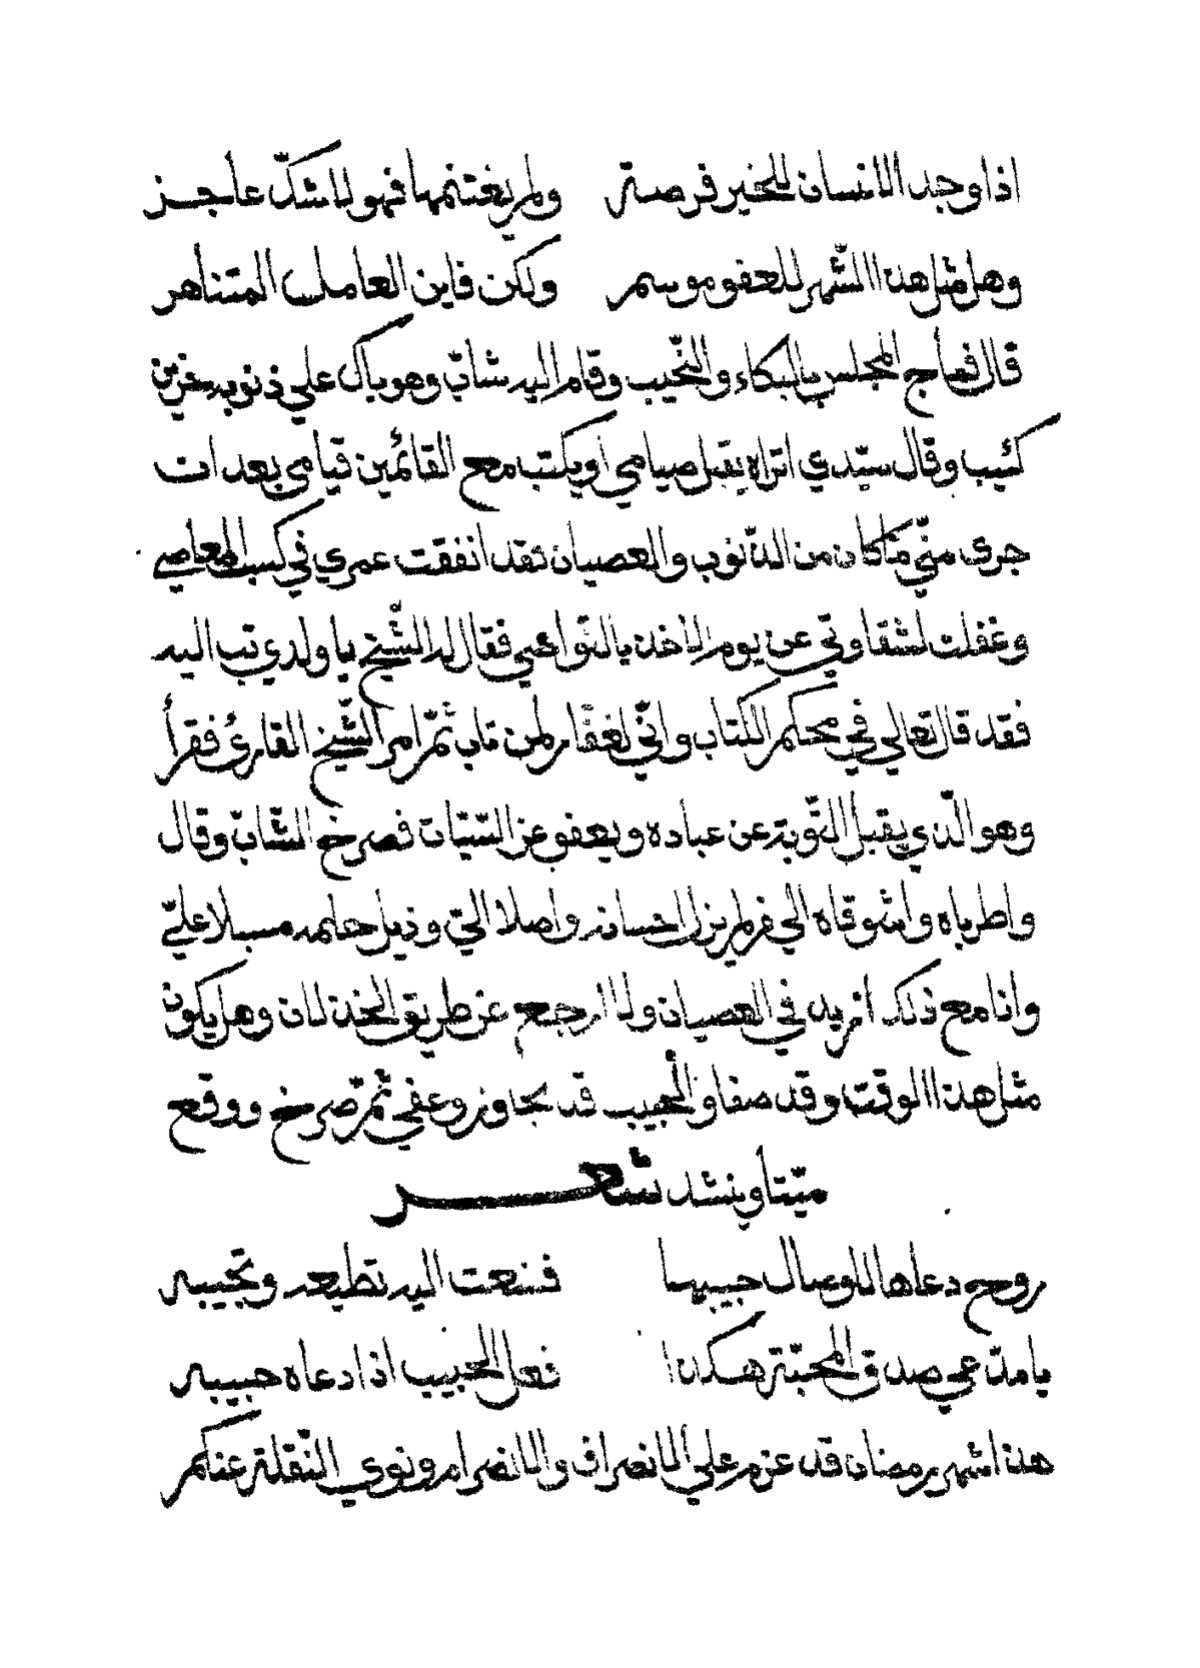 اذا وجد الانسان للخير فرصة ولم يغتنمها فهو لا شكّ عاجز
وهل مثل هذا الشّهر للعفو موسم ولكن فاين العامل المتناهر
قال فعاج المجلس بالبكاء والنّحيب وقام اليه شابّ وهو باك علي ذنوبه حزين
كئيب وقال سيّدي اتراه يقبل صيامي أو يكتب مع القائمين قيامي بعد ان
جرى منّي ما كان من الذّنوب والعصيان فقد انفقت عمري في كسب المعاصي
وغفلت لشقاوتي عن يوم الاخذ بالنّواصي فقال له الشّيخ يا ولدي تب اليه
فقد قال تعالي في محكم الكتاب وانّي لغفّار لمن تاب ثمّ امر الشّيخ القارئ فقرأ
وهو الّذي يقبل التّوبة عن عباده ويعفو عن السّيّات فصرخ الشّابّ وقال
واطرباه واشوقاه الي من لم يزل احسانه واصلا اليّ وذيل حلمه مسبلا عليّ
وانا مع ذلك أزيد في العصيان ولا ارجع عن طريق الخذلان وهل يكون
مثل هذا الوقت وقد صفا والحبيب قد تجاوز وعفي ثمّ صرخ ووقع
ميّتا وينشد شعر
روح دعاها للوصال حبيبها فسعت اليه تطيعه وتجيبه
يا مدّعي صدق المحبّة هكذا فعل الحبيب اذا دعاه حبيبه
هذا شهر رمضان قد عزم علي الانصراف والانصرام ونوي النّقلة عنكم